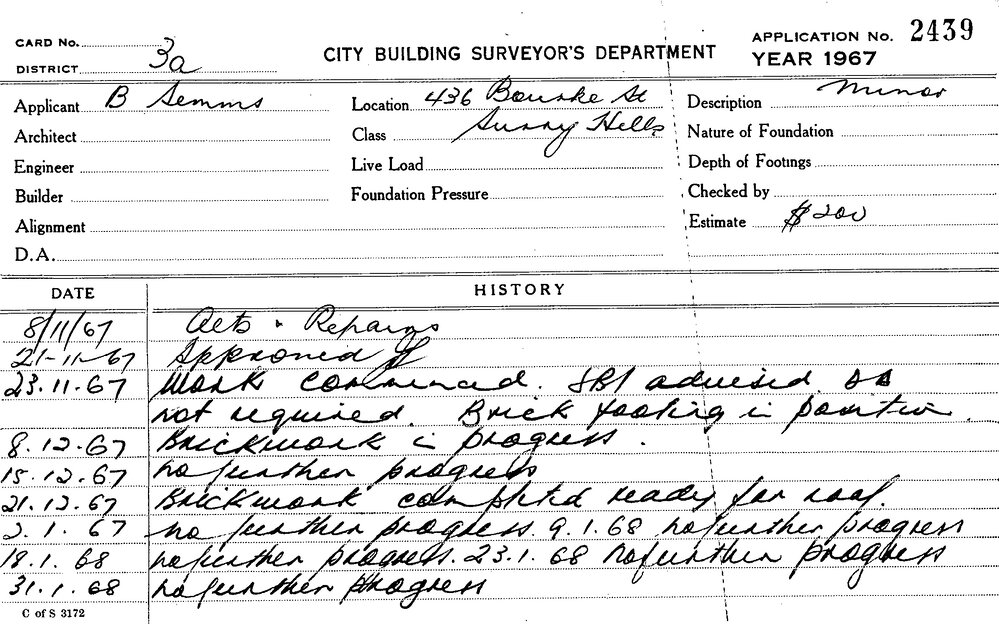 CARD No.
DISTRICT 3a
CITY BUILDING SURVEYOR'S DEPARTMENT
APPLICATION No. 2439
YEAR 1967
Applicant B Semms
Location 436 Bourke St
Description Minor
Architect
Class Surry Hills
Nature of Foundation
Engineer
Live Load
Depth of Footings
Builder
Foundation Pressure
Checked by
Alignment
Estimate $200
D.A.
DATE HISTORY
8/11/67 Alts & Repairs
21-11-67 Approved
23.11.67 Work commenced. SBI advised
not required. Brick footing in position.
8.12.67 Brickwork in progress.
15.12.67 no further progress
21.12.67 Brickwork completed ready for roof.
2.1.67 no further progress. 9.1.68 no further progress
18.1.68 no further progress. 23.1.68 no further progress
31.1.68 no further progress
C of S 3172